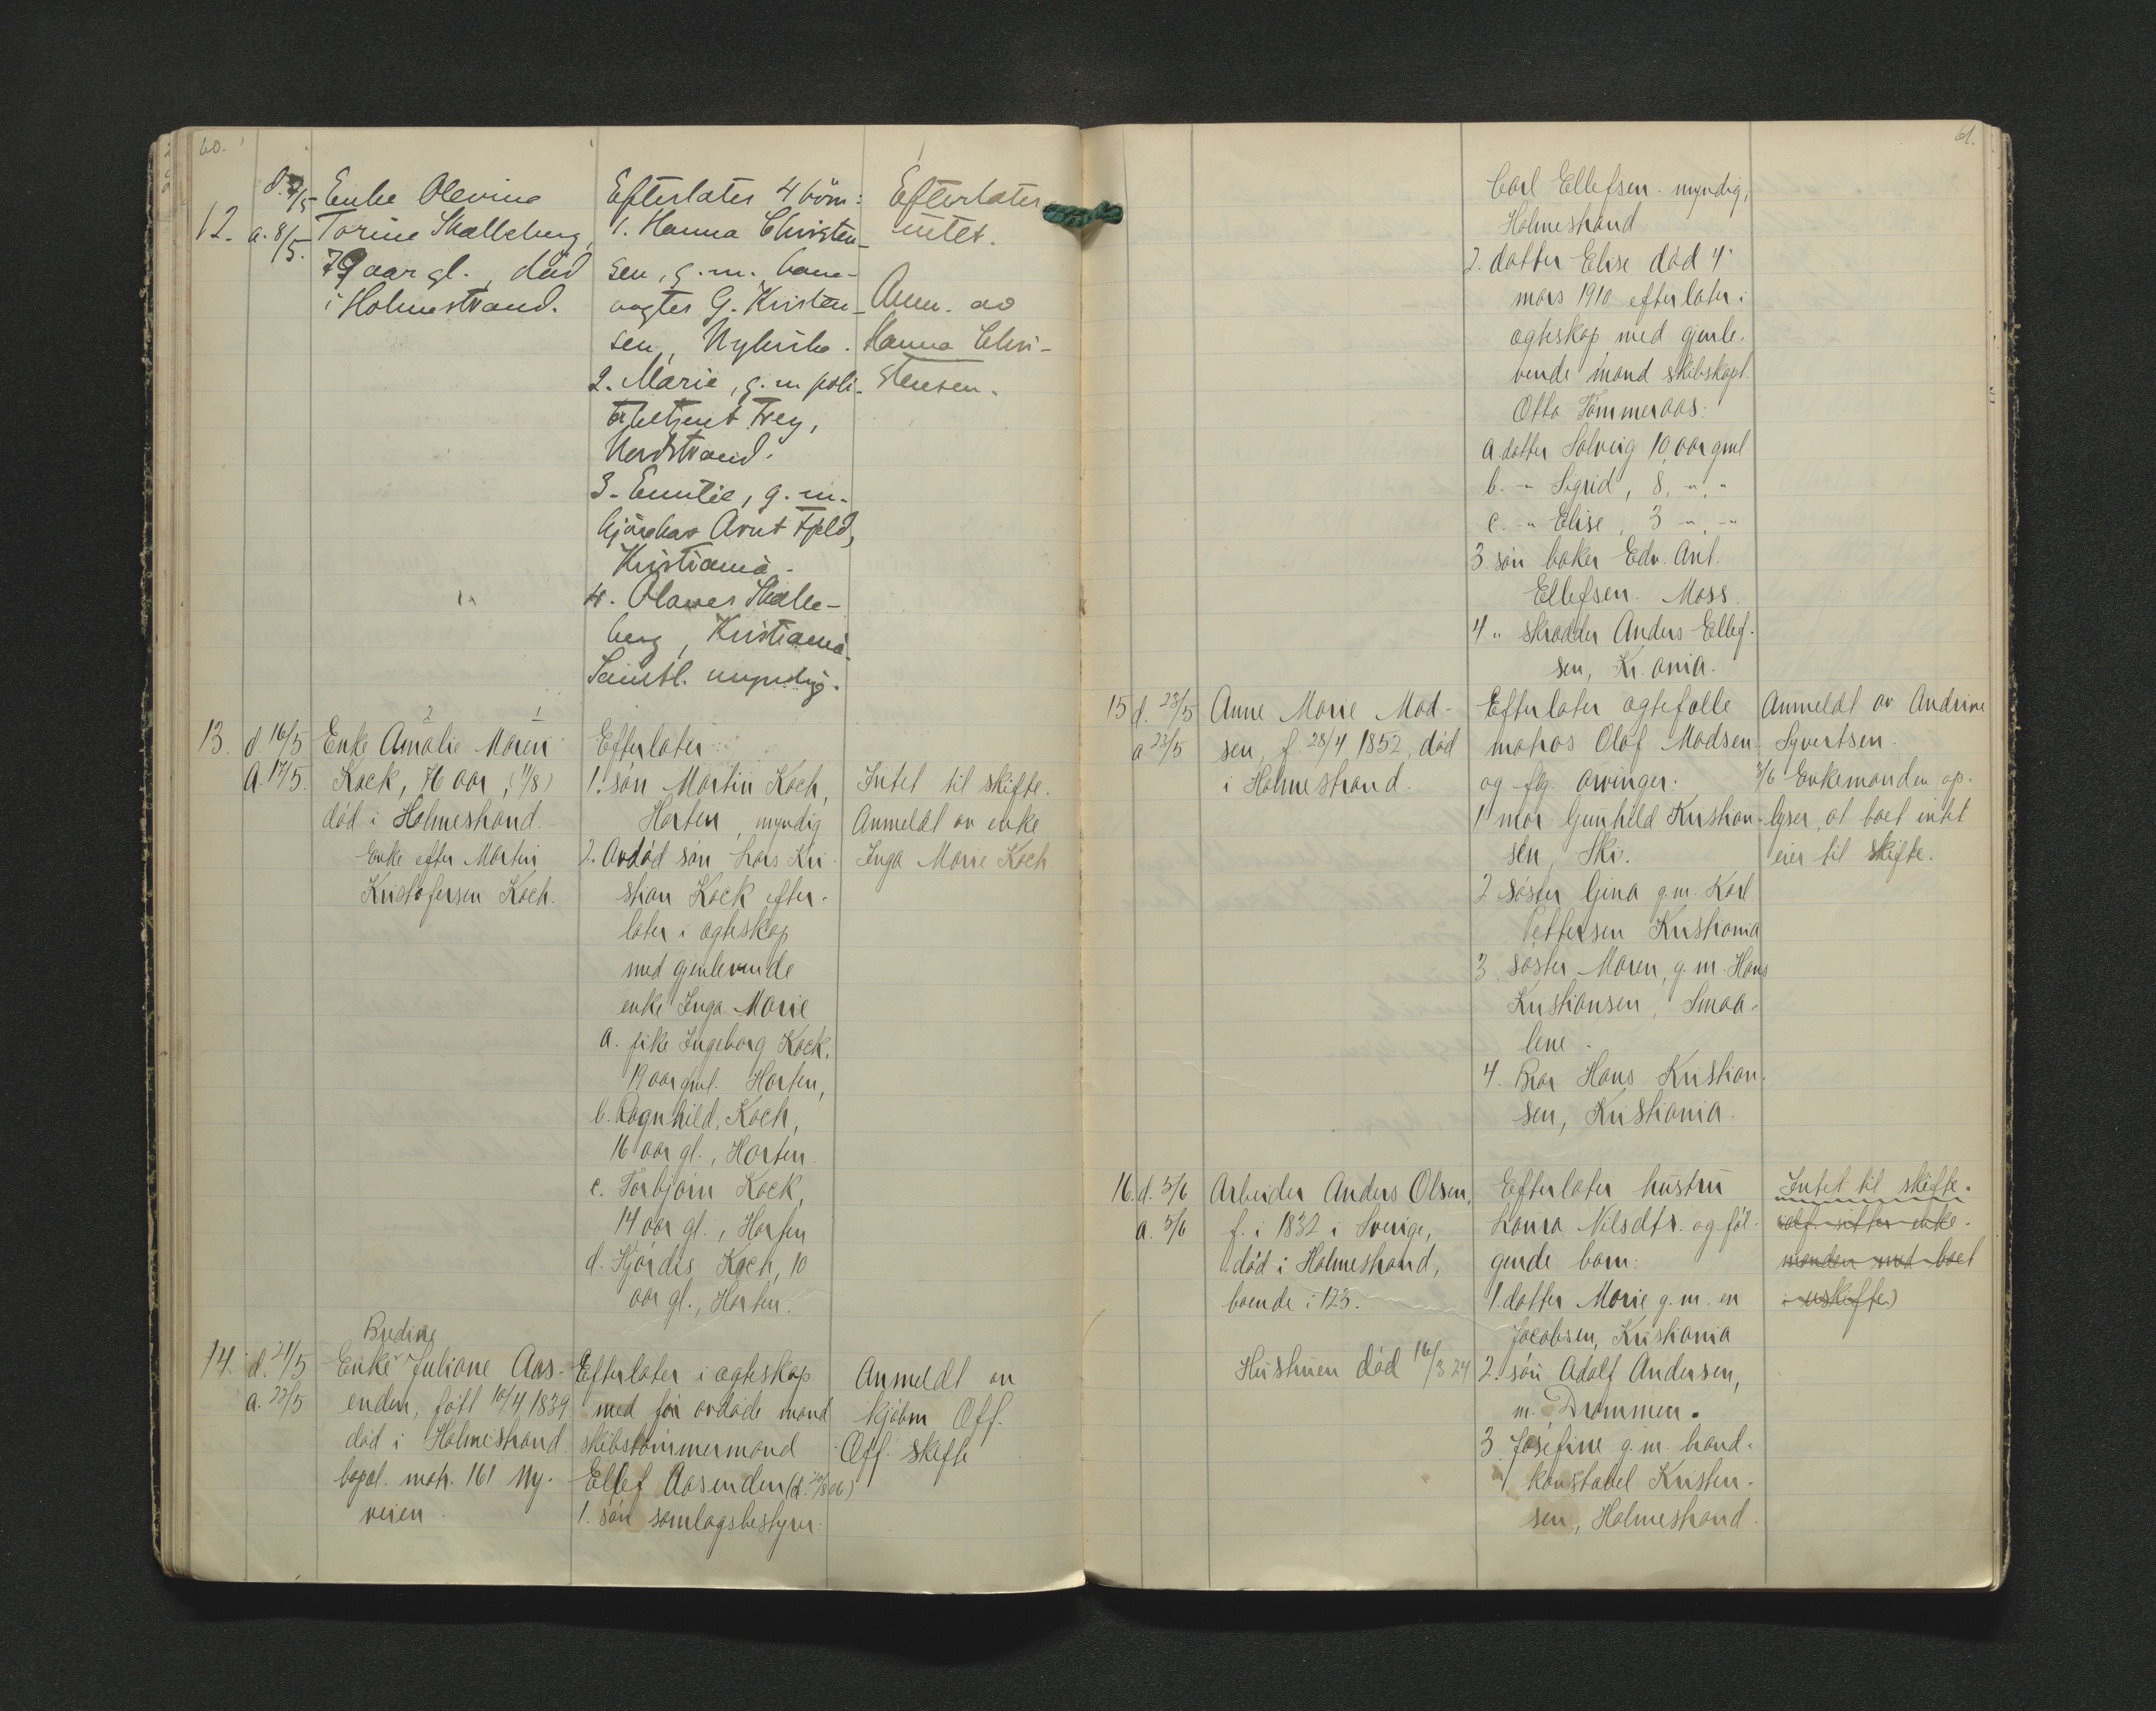 60.
12.
d. 7/5
a. 8/5.
Enke Olevine
Torine Skalleberg,
79 aar gl., död
i Holmestrand.
Efterlater 4 börn:
1. Hanna Christen-
sen, g. m. bane-
vogter G. Kristen-
sen, Nykirke.
2. Marie, g. m. poli-
tibetjent Frey,
Nordstrand.
3. Emilie, g. m.
kjörekar Arnt Fjeld,
Kristiania.
4. Olaves Skalle-
berg, Kristiania.
Samtl. myndig.
Efterlater
intet.
Anm. av
Hanna Chri-
stensen.
13.
d 16/5
a. 17/5.
2 1
Enke Amalie Maren
Kock, 76 aar, (11/8)
död i Holmestrand.
Enke efter Martin
Kristofersen Koch.
Efterlater
1. sön Martin Koch,
Horten, myndig
2. Avdöd sön Lars Kri-
stian Kock efter-
later i ægteskap
med gjenlevende
enke Inga Marie
a. pike Ingeborg Kock,
19 aar gml. Horten,
b. Ragnhild, Koch,
16 aar gl., Horten.
c. Torbjörn Kock,
14 aar gl., Horten
d. Hjördis Koch, 10
aar gl., Horten.
Intet til skifte.
Anmeldt av enke
Inga Marie Koch
14.
d. 21/5
a. 22/5
Bredine
Enke Juliane Aas-
enden, født 10/4 1839
död i Holmestrand.
bopæl. matr. 161 Ny-
veien.
Efterlater i ægteskap
med før avdøde mand
skibstömmermand
Ellef Aasenden (d. 20/8 06)
1. sön samlagsbestyrer
Anmeldt av
kjöbm Off.
Off. skifte
61.
Carl Ellefsen. myndig,
Holmestrand
2. datter Elise död 4.
mars 1910 efterlater i
ægteskap med gjenle-
vende mand skibskapt.
Otto Tömmeraas:
a datter Solveig 10 aar gml.
b. -"- Sigrid, 8, -"- -"-
c. -"- Elise, 3 -"- -"-
3 sön baker Edv. Ant.
Ellefsen. Moss.
4 " skrædder Anders Ellef-
sen, Kr.ania.
15
d. 23/5
a 23/5
Anne Marie Mad-
sen, f. 28/4 1852, död
i Holmestrand.
Efterlater ægtefælle
matros Olaf Madsen
og flg. arvinger.
1 mor Gunhild Kristian-
sen, Ski.
2 söster Gina g.m. Karl
Pettersen Kristiania
3. söster Maren, g. m. Hans
Kristiansen, Smaa-
lene.
4. Bror Hans Kristian-
sen, Kristiania.
Anmeldt av Andrine
Syvertsen.
3/6 Enkemanden op-
lyser, at boet intet
eier til skifte.
16.
d. 5/6
a. 5/6
Arbeider Anders Olsen,
f. i 1832 i Sverige,
död i Holmestrand,
boende i 123.
Hustruen död 16/3 24
Efterlater hustru
Laura Nilsdtr. og föl-
gende barn:
1. datter Marie g. m. en
Jacobsen, Kristiania
2. sön Adolf Andersen,
m. Drammen.
3 Josefine g. m. brand-
konstabel Kristen-
sen, Holmestrand.
Intet til skifte.
sitter enke-
manden med boet
i uskifte)